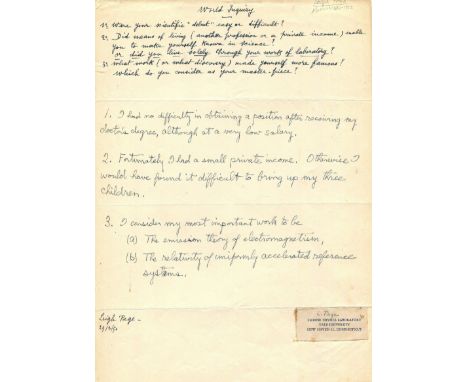 World Inquiry
1) Were your scientific "debut" easy or difficult?
2) Did means of living (another profession or a private income) enable
you to make yourself known in science?
or did you live solely through your work of laboratory?
3) What work (or what discovery) made yourself more famous?
Which do you consider as your master-piece?
1. I had no difficulty in obtaining a position after receiving my
doctor's degree, although at a very low salary.
2. Fortunately I had a small private income. Otherwise I
would have found it difficult to bring up my three
children.
3. I consider my most important work to be
(a) The emission theory of electromagnetism,
(b) The relativity of uniformly accelerated reference
systems.
Leigh Page
L. Page
SLOANE PHYSICS LABORATORY
YALE UNIVERSITY
NEW HAVEN 11, CONNECTICUT